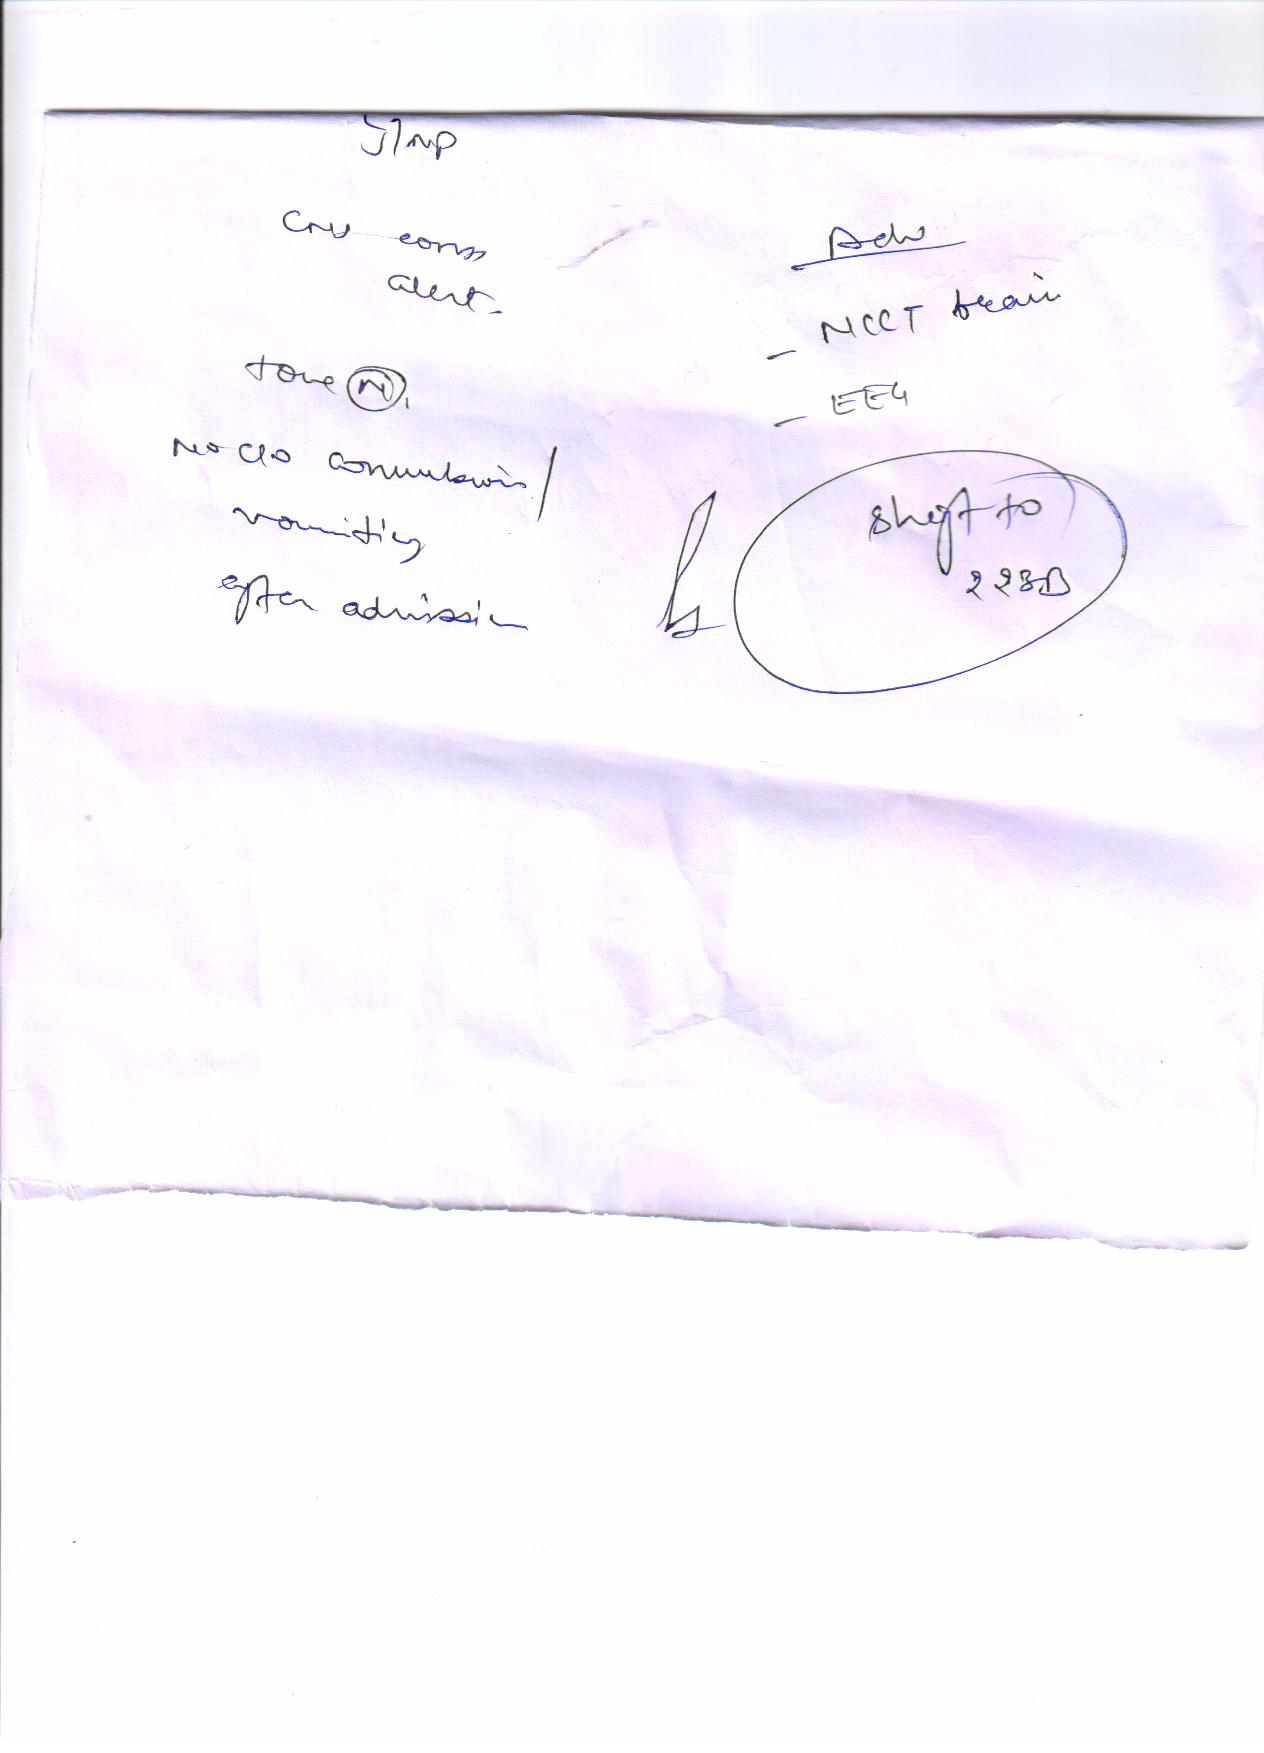 CNS cons
alert.
tone N
No c/o convulsion/
vomiting
after admission
Adv
- NCCT brain
- EEG
shift to
223B